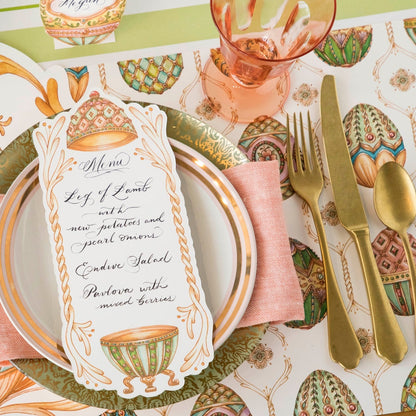 Menu
Leg of Lamb
with
new potatoes and
pearl onions
Endive Salad
Pavlova with
mixed berries